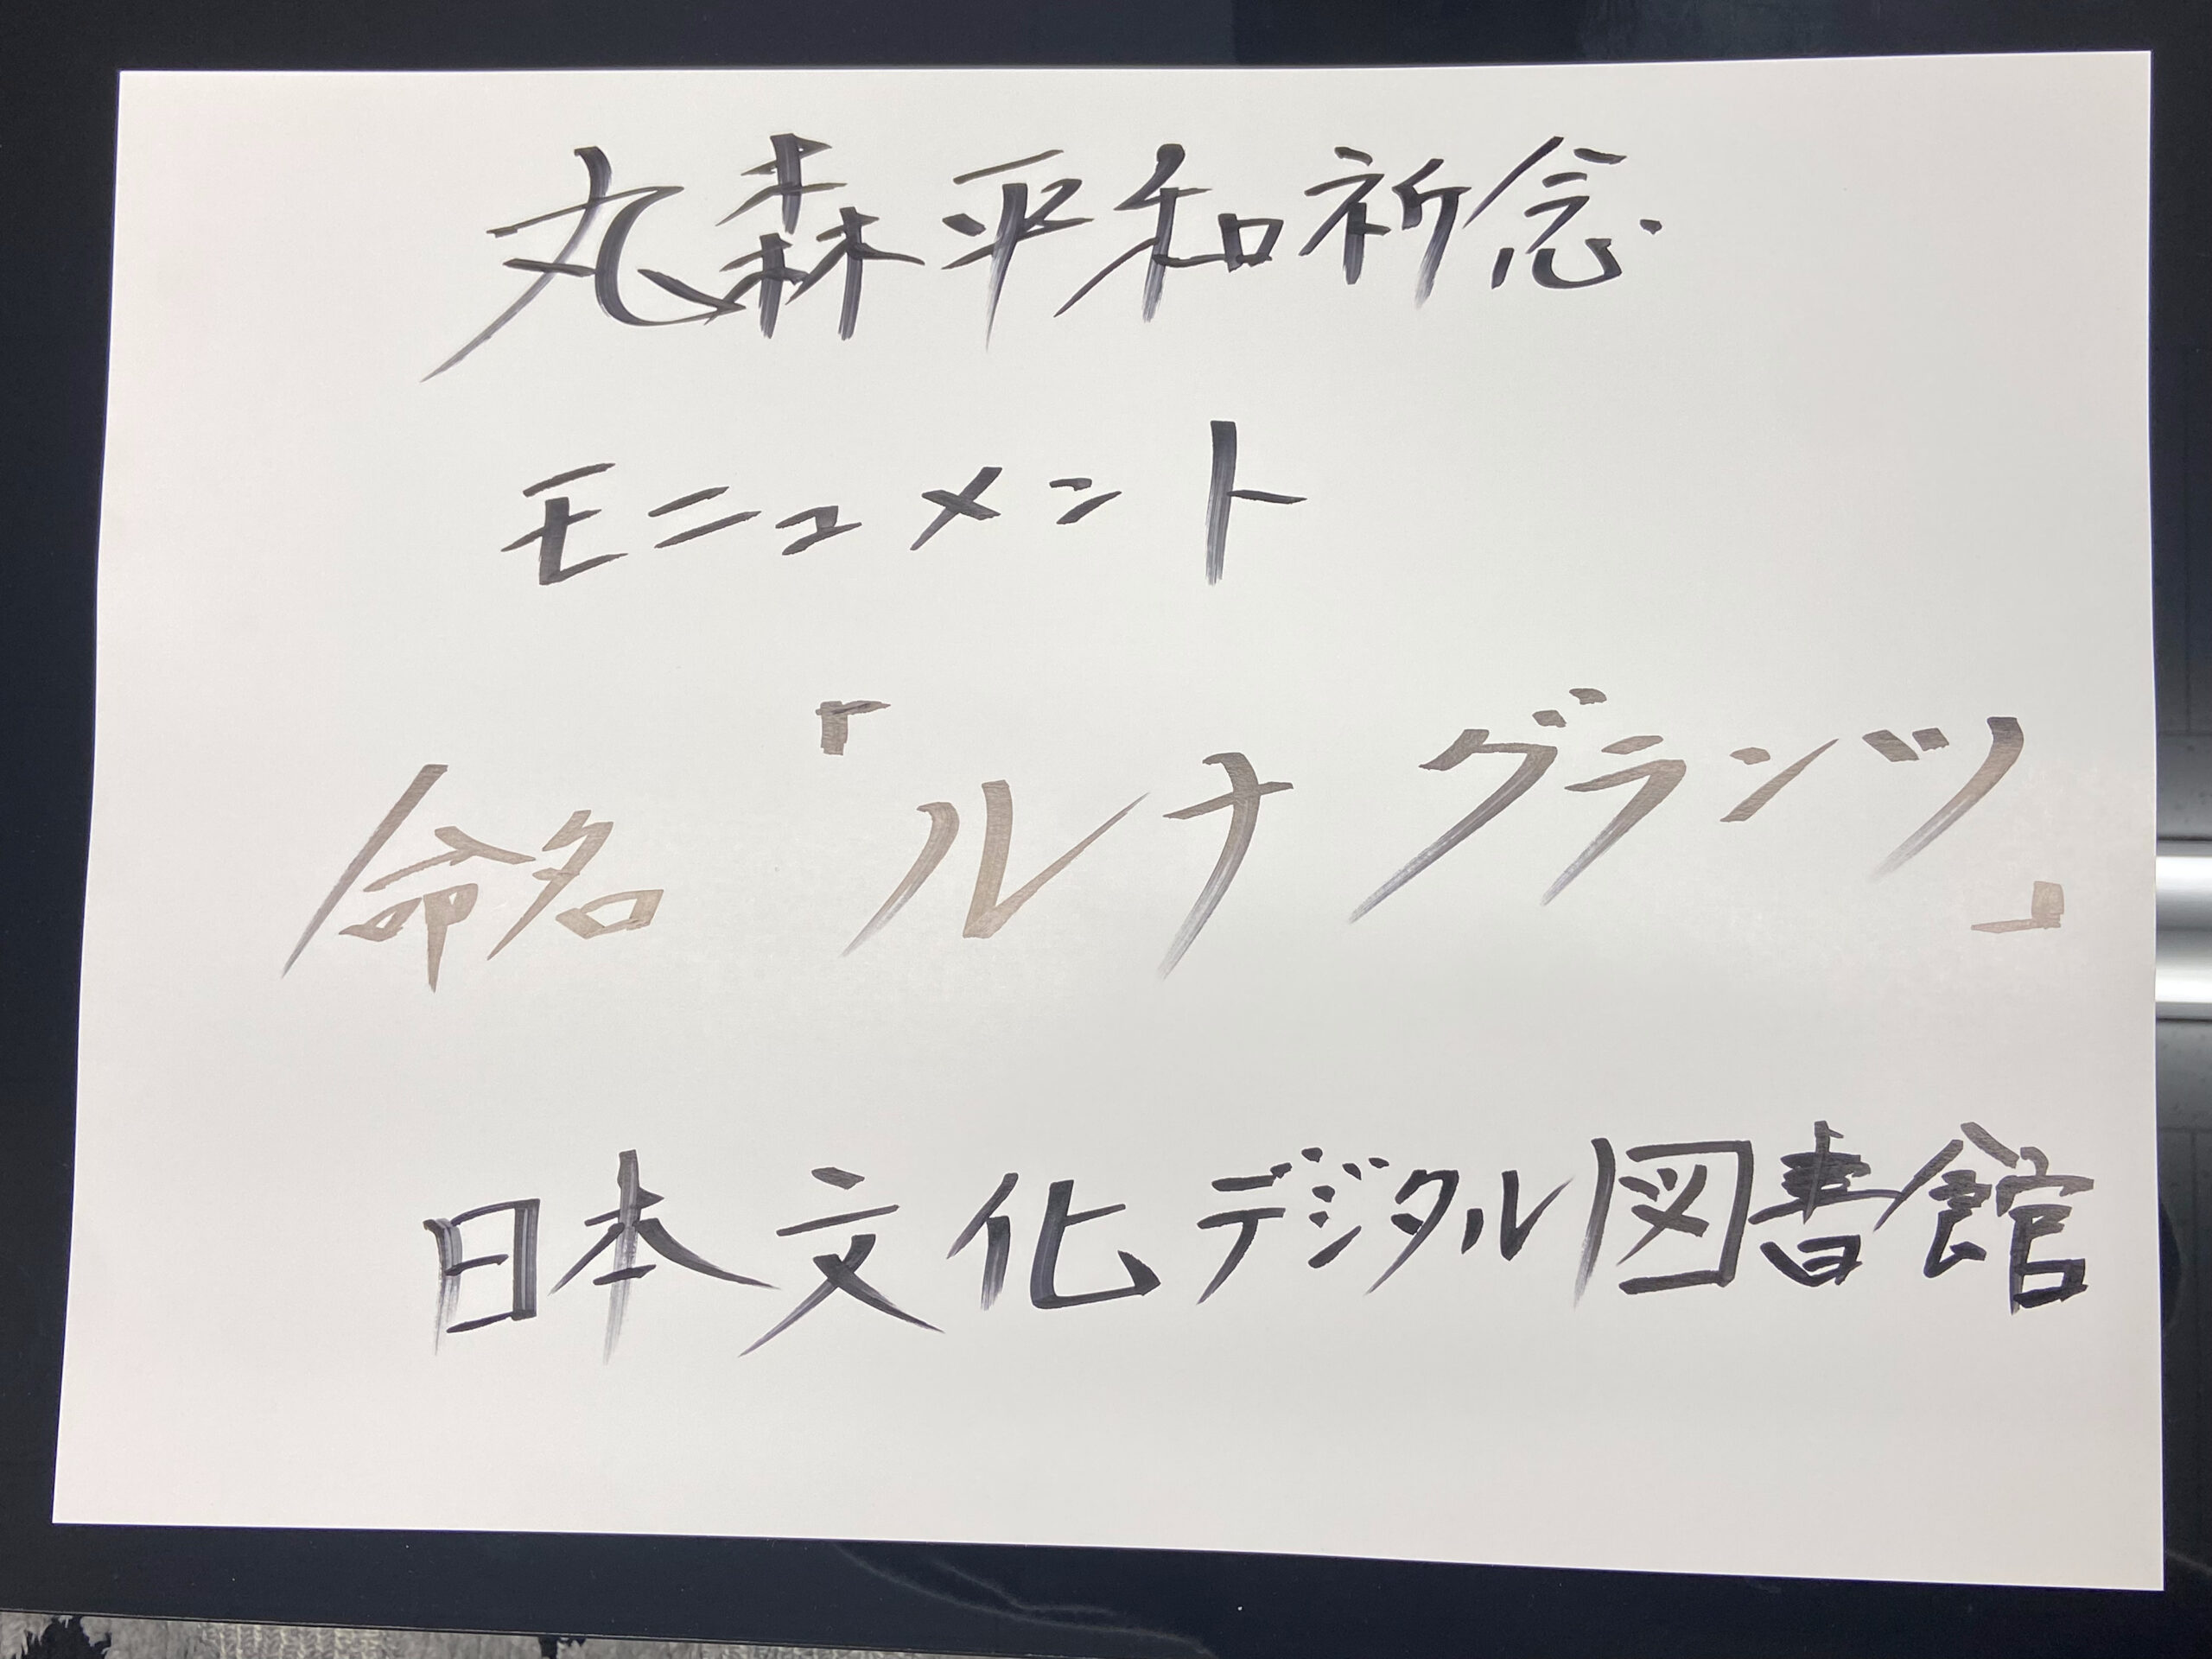 丸森平和祈念
モニュメント
命名「ルナグランツ」
日本文化デジタル図書館